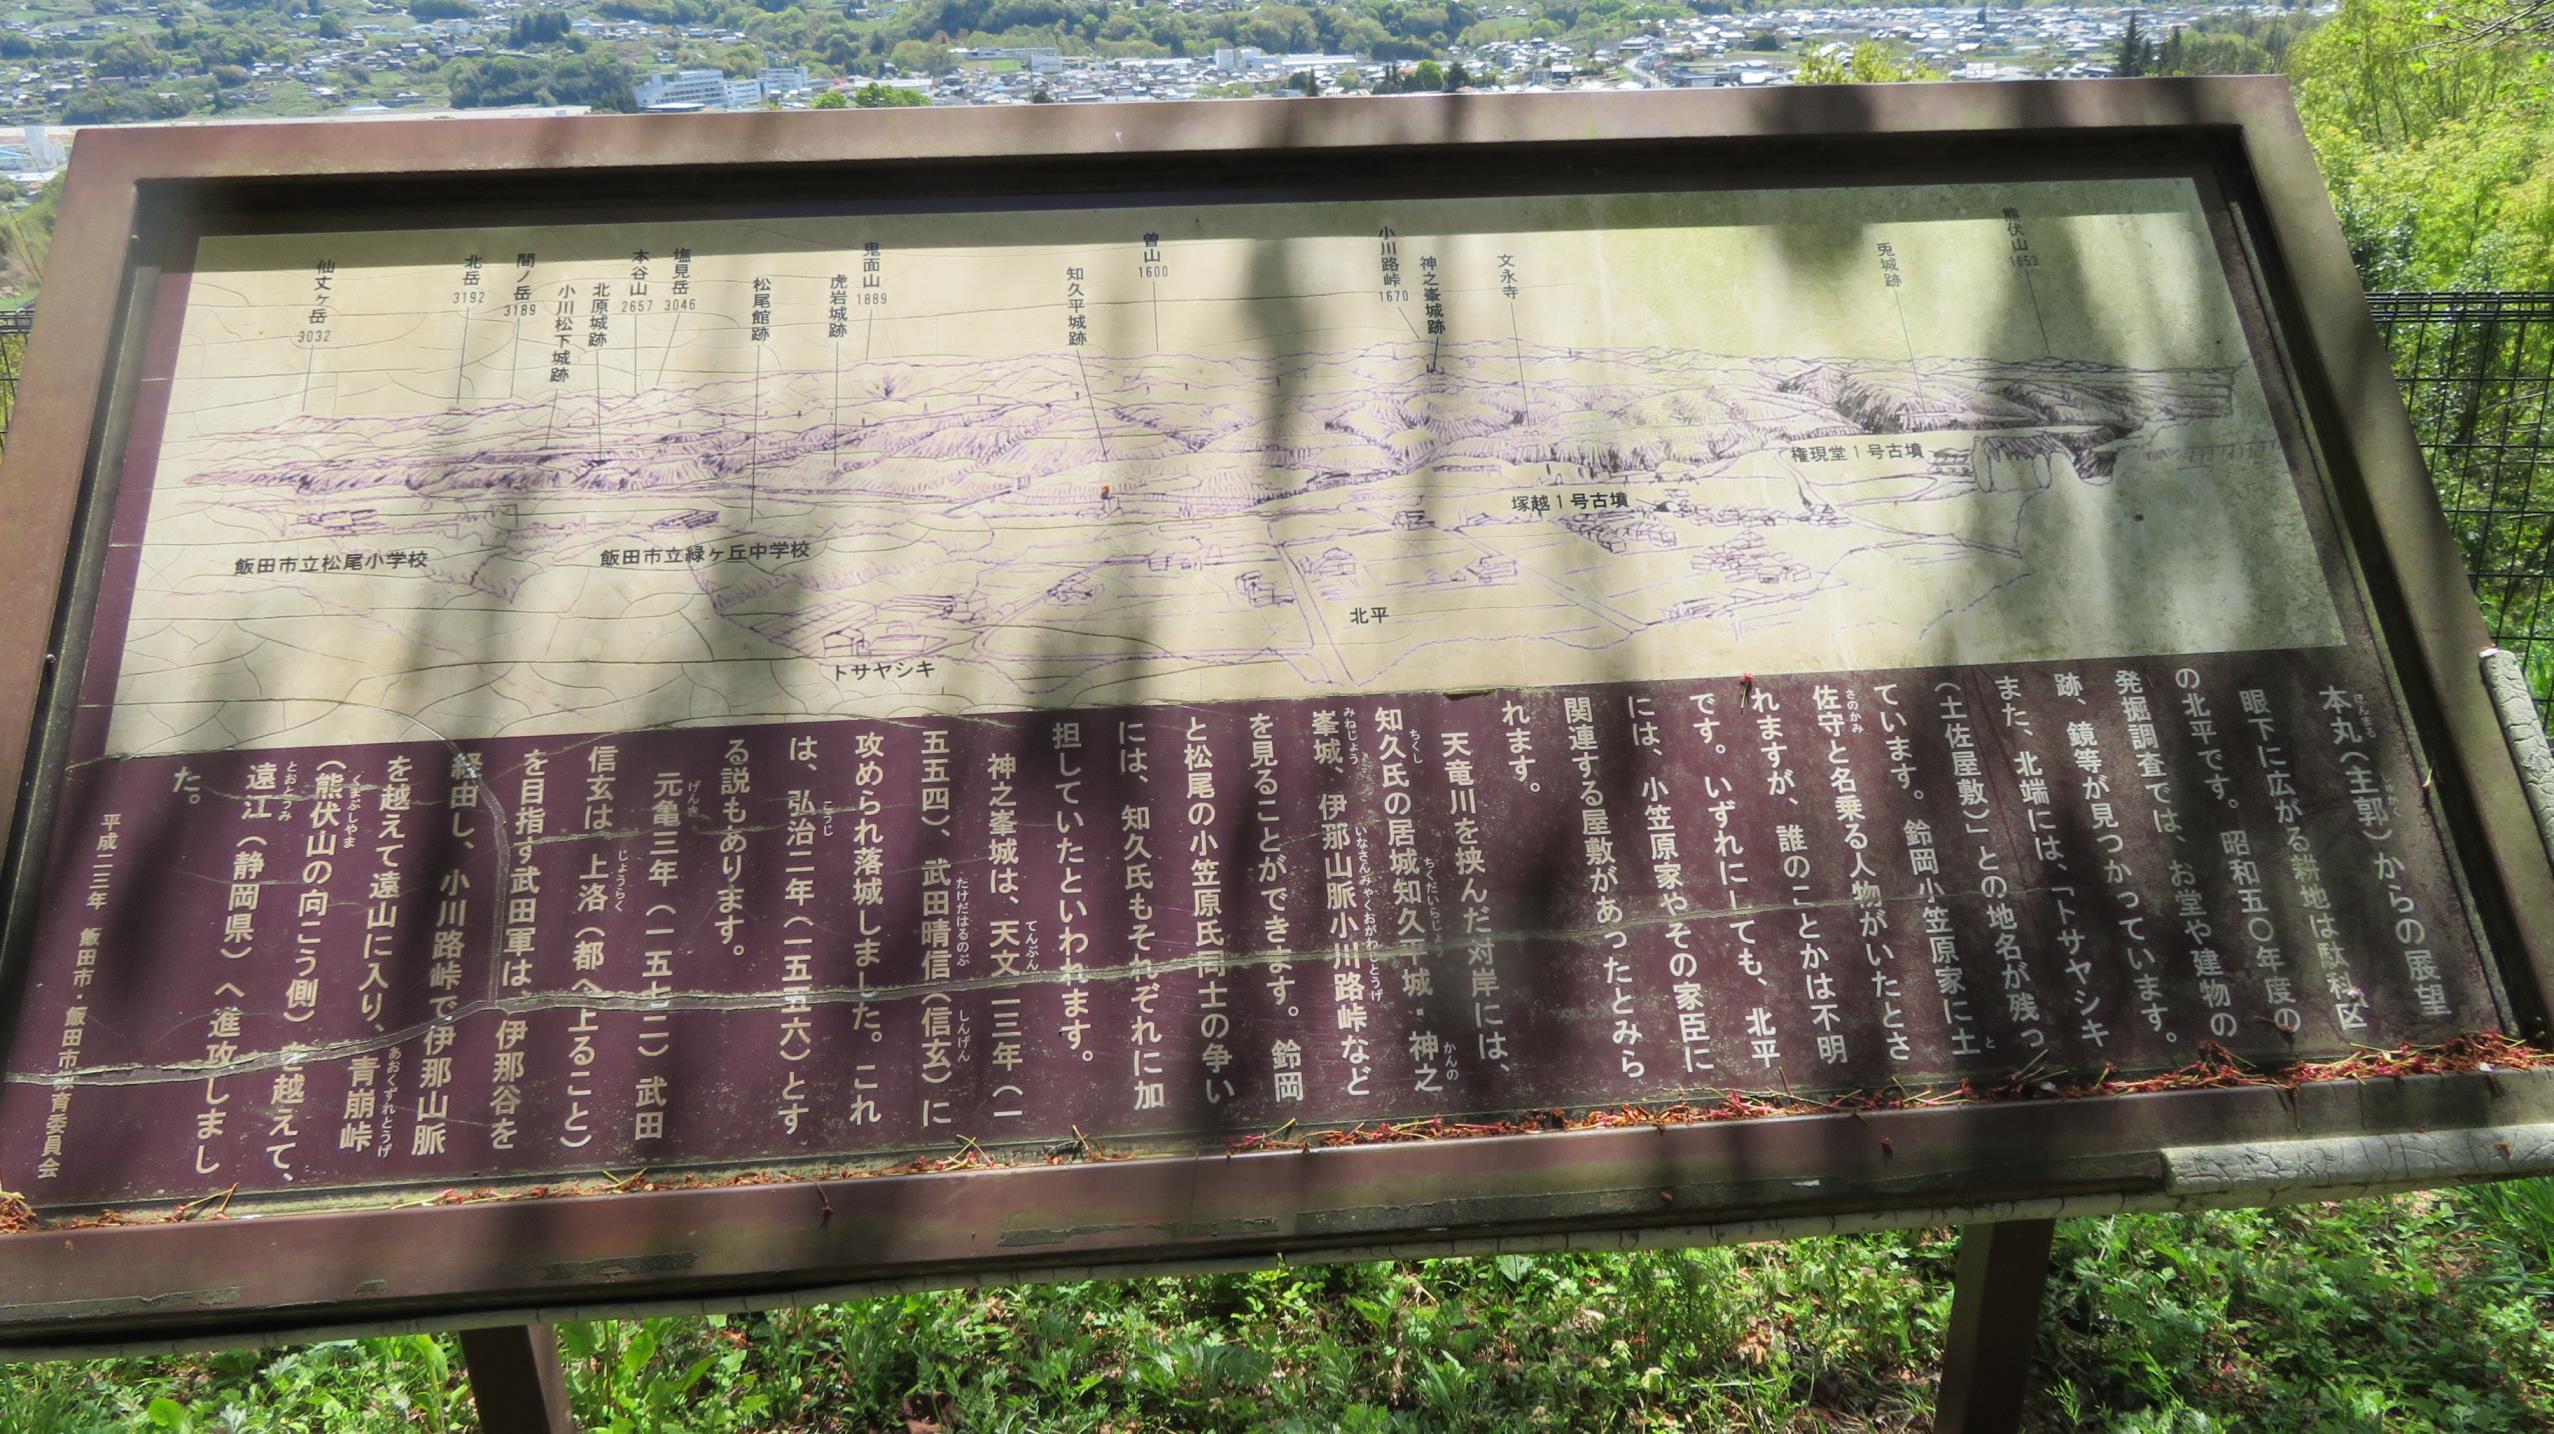 仙丈ヶ岳
3032
北岳
3192
間ノ岳
3189
小川松下城跡
北原城跡
本谷山
2657
塩見岳
3046
松尾館跡
虎岩城跡
鬼面山
1889
知久平城跡
曽山
1600
小川路峠
1670
神之峯城跡
文永寺
兎城跡
熊伏山
1653
権現堂1号古墳
塚越1号古墳
飯田市立松尾小学校
飯田市立緑ヶ丘中学校
北平
トサヤシキ
本丸(主郭)からの展望
眼下に広がる耕地は駄科区
の北平です。昭和五〇年度の
発掘調査では、お堂や建物の
跡、鏡等が見つかっています。
また、北端には、「トサヤシキ
(土佐屋敷)」との地名が残っ
ています。鈴岡小笠原家に土
佐守と名乗る人物がいたとさ
れますが、誰のことかは不明
です。いずれにしても、北平
には、小笠原家やその家臣に
関連する屋敷があったとみら
れます。
天竜川を挟んだ対岸には、
知久氏の居城知久平城・神之
峯城、伊那山脈小川路峠など
を見ることができます。鈴岡
と松尾の小笠原氏同士の争い
には、知久氏もそれぞれに加
担していたといわれます。
神之峯城は、天文二三年(一
五五四)、武田晴信(信玄)に
攻められ落城しました。これ
は、弘治二年(一五五六)とす
る説もあります。
元亀三年(一五七二)武田
信玄は、上洛(都へ上ること)
を目指す武田軍は、伊那谷を
経由し、小川路峠で伊那山脈
を越えて遠山に入り、青崩峠
(熊伏山の向こう側)を越えて、
遠江(静岡県)へ進攻しまし
た。
平成二三年 飯田市・飯田市教育委員会